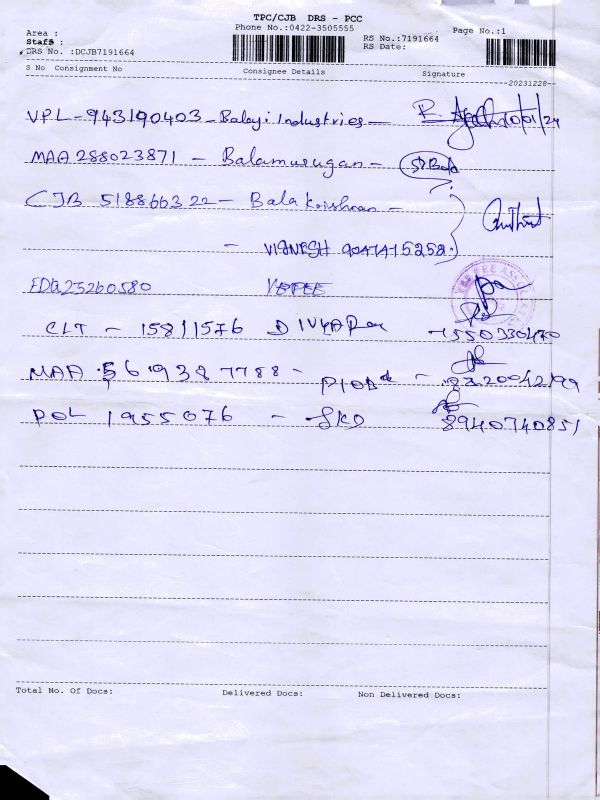 TPC/CJB DRS - PCC
Phone No.:0422-3505555
Area :
Staff :
DRS No. :DCJB7191664
RS No.:7191664
RS Date:
Page No.:1
S No Consignment No Consignee Details Signature
20231228
VPL-943190403-Balaji Industries- 10/01/24
MAA288023871 - Balamurugan-
CJB 518866322 - Balakrishnan -
- VIGNESH
FDQ25260580
CLT - 15811576
MAA 569387788 -
POL 1955076 - 8940740851
Total No. Of Docs: Delivered Docs: Non Delivered Docs: